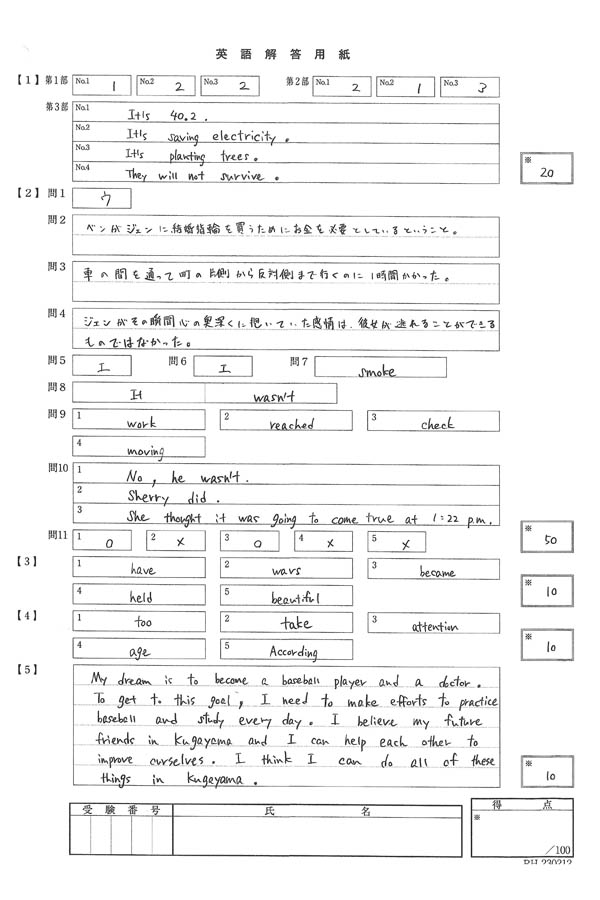 英語解答用紙
【1】 第1部 No.1 1 No.2 2 No.3 2 第2部 No.1 2 No.2 1 No.3 3
第3部 No.1 It's 40.2.
No.2 It's saving electricity.
No.3 It's planting trees.
No.4 They will not survive.
※ 20
【2】 問1 ウ
問2 ベンがジェンに結婚指輪を買うためにお金を必要としているということ。
問3 車の間を通って町の片側から反対側まで行くのに1時間かかった。
問4 ジェンがその瞬間心の奥深くに抱いていた感情は、彼女が逃れることができる
ものではなかった。
問5 エ 問6 エ 問7 smoke
問8 It wasn't
問9 1 work 2 reached 3 check
4 moving
問10 1 No, he wasn't.
2 Sherry did.
3 She thought it was going to come true at 1:22 p.m.
問11 1 ○ 2 × 3 ○ 4 × 5 ×
※ 50
【3】 1 have 2 wars 3 became
4 held 5 beautiful
※ 10
【4】 1 too 2 take 3 attention
4 age 5 According
※ 10
【5】 My dream is to become a baseball player and a doctor.
To get to this goal, I need to make efforts to practice
baseball and study every day. I believe my future
friends in Kugayama and I can help each other to
improve ourselves. I think I can do all of these
things in Kugayama.
※ 10
受験番号 氏名 得点
※
/100